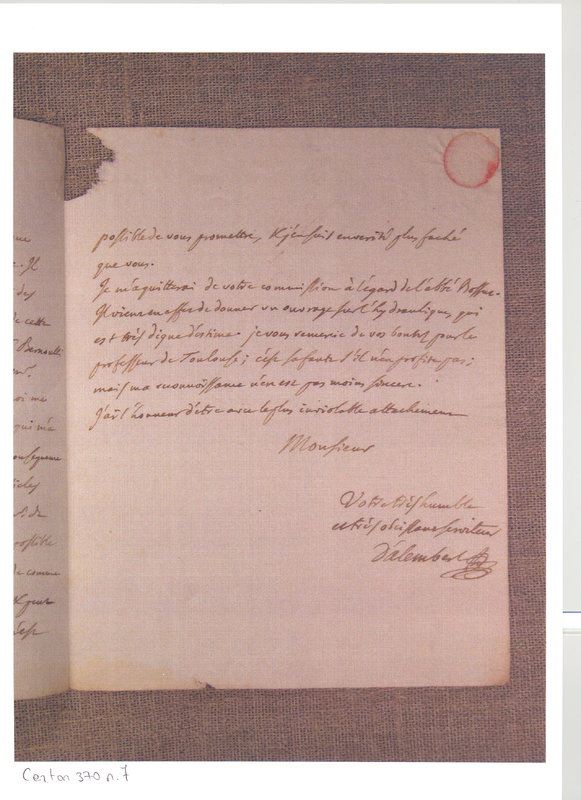 me
. Il
des
de cette
Bernoulli
oi me
qui m'a
onsequence
icles
possible
de comme
possible de vous promettre, et j'en suis en verité plus faché
que vous.
Je m'aquitterai de votre commission à l'egard de l'abbé Bossut.
Il vient en effet de donner un ouvrage sur l'hydraulique, qui
est très digne d'estime. je vous remercie de vos bontés pour le
professeur de Toulouse; c'est sa faute s'il n'en profite pas;
mais ma reconnoissance n'en est pas moins sincere.
J'ai l'honneur d'etre avec le plus inviolable attachement
Monsieur
Votre très humble
et très obeissant serviteur
D'alembert
Certon 370 n. 7